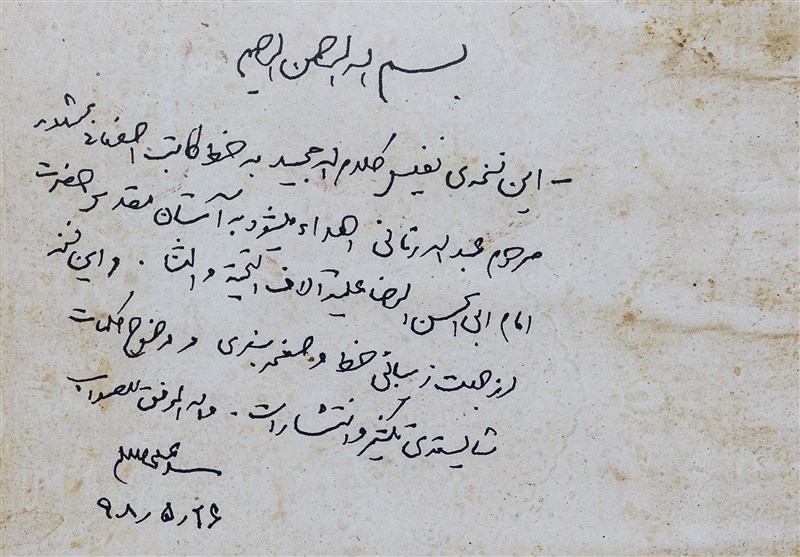 بسم الله الرحمن الرحیم
- این نسخه‌ی نفیس کلام الله مجید به خط کاتب اصفهانی مشهور
مرحوم عبدالله رنانی اهداء میشود به آستان مقدس حضرت
امام ابی الحسن الرضا علیه آلاف التحیة والثنا . و این نسخه
از جهت زیبائی خط و صفحه بندی و وضوح کلمات
شایسته‌ی تکثیر و انتشار است . والله الموفق للصواب
۹۸٫۵٫۲۶